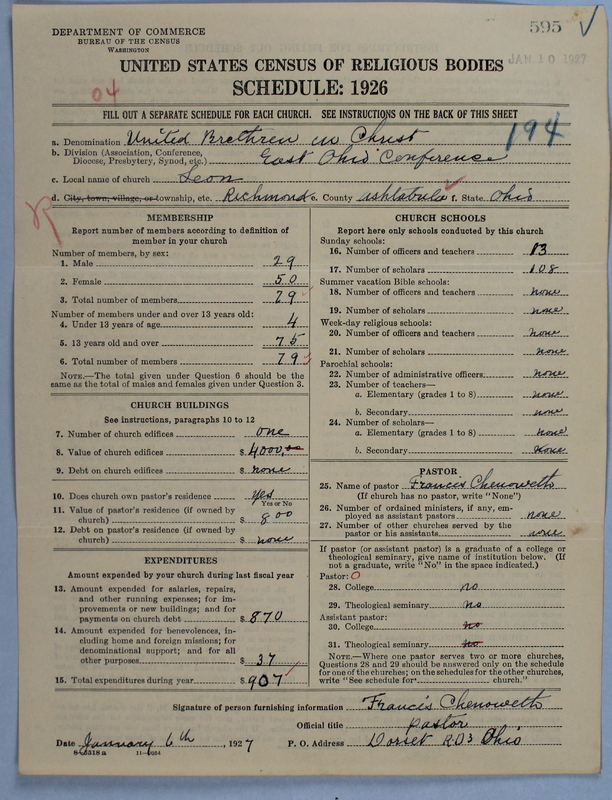 DEPARTMENT OF COMMERCE
BUREAU OF THE CENSUS
WASHINGTON
595
JAN 10 1927
UNITED STATES CENSUS OF RELIGIOUS BODIES
SCHEDULE: 1926
04
FILL OUT A SEPARATE SCHEDULE FOR EACH CHURCH. SEE INSTRUCTIONS ON THE BACK OF THIS SHEET
194
a. Denomination United Brethren in Christ
b. Division (Association, Conference, Diocese, Presbytery, Synod, etc.) East Ohio Conference
c. Local name of church Leon
d. City, town, village, or township, etc. Richmond e. County Ashtabula f. State Ohio
MEMBERSHIP
Report number of members according to definition of
member in your church
Number of members, by sex:
1. Male 29
2. Female 50
3. Total number of members 79
Number of members under and over 13 years old:
4. Under 13 years of age 4
5. 13 years old and over 75
6. Total number of members 79
NOTE.—The total given under Question 6 should be
the same as the total of males and females given under Question 3.
CHURCH BUILDINGS
See instructions, paragraphs 10 to 12
7. Number of church edifices one
8. Value of church edifices $ 4000,00
9. Debt on church edifices $ none
10. Does church own pastor's residence yes
Yes or No
11. Value of pastor's residence (if owned by
church) $ 800
12. Debt on pastor's residence (if owned by
church) $ none
EXPENDITURES
Amount expended by your church during last fiscal year
13. Amount expended for salaries, repairs,
and other running expenses; for im-
provements or new buildings; and for
payments on church debt $ 870
14. Amount expended for benevolences, in-
cluding home and foreign missions; for
denominational support; and for all
other purposes $ 37
15. Total expenditures during year $ 907
CHURCH SCHOOLS
Report here only schools conducted by this church
Sunday schools:
16. Number of officers and teachers 13
17. Number of scholars 108
Summer vacation Bible schools:
18. Number of officers and teachers none
19. Number of scholars none
Week-day religious schools:
20. Number of officers and teachers none
21. Number of scholars none
Parochial schools:
22. Number of administrative officers none
23. Number of teachers—
a. Elementary (grades 1 to 8) none
b. Secondary none
24. Number of scholars—
a. Elementary (grades 1 to 8) none
b. Secondary none
PASTOR
25. Name of pastor Francis Chenoweth
(If church has no pastor, write "None")
26. Number of ordained ministers, if any, em-
ployed as assistant pastors none
27. Number of other churches served by the
pastor or his assistants none
If pastor (or assistant pastor) is a graduate of a college or
theological seminary, give name of institution below. (If
not a graduate, write "No" in the space indicated.)
Pastor: O
28. College no
29. Theological seminary no
Assistant pastor:
30. College no
31. Theological seminary no
NOTE.—Where one pastor serves two or more churches,
Questions 28 and 29 should be answered only on the schedule
for one of the churches; on the schedules for the other churches,
write "See schedule for church."
Signature of person furnishing information Francis Chenoweth
Official title pastor
Date January 6th, 1927 P. O. Address Dorset RD3 Ohio